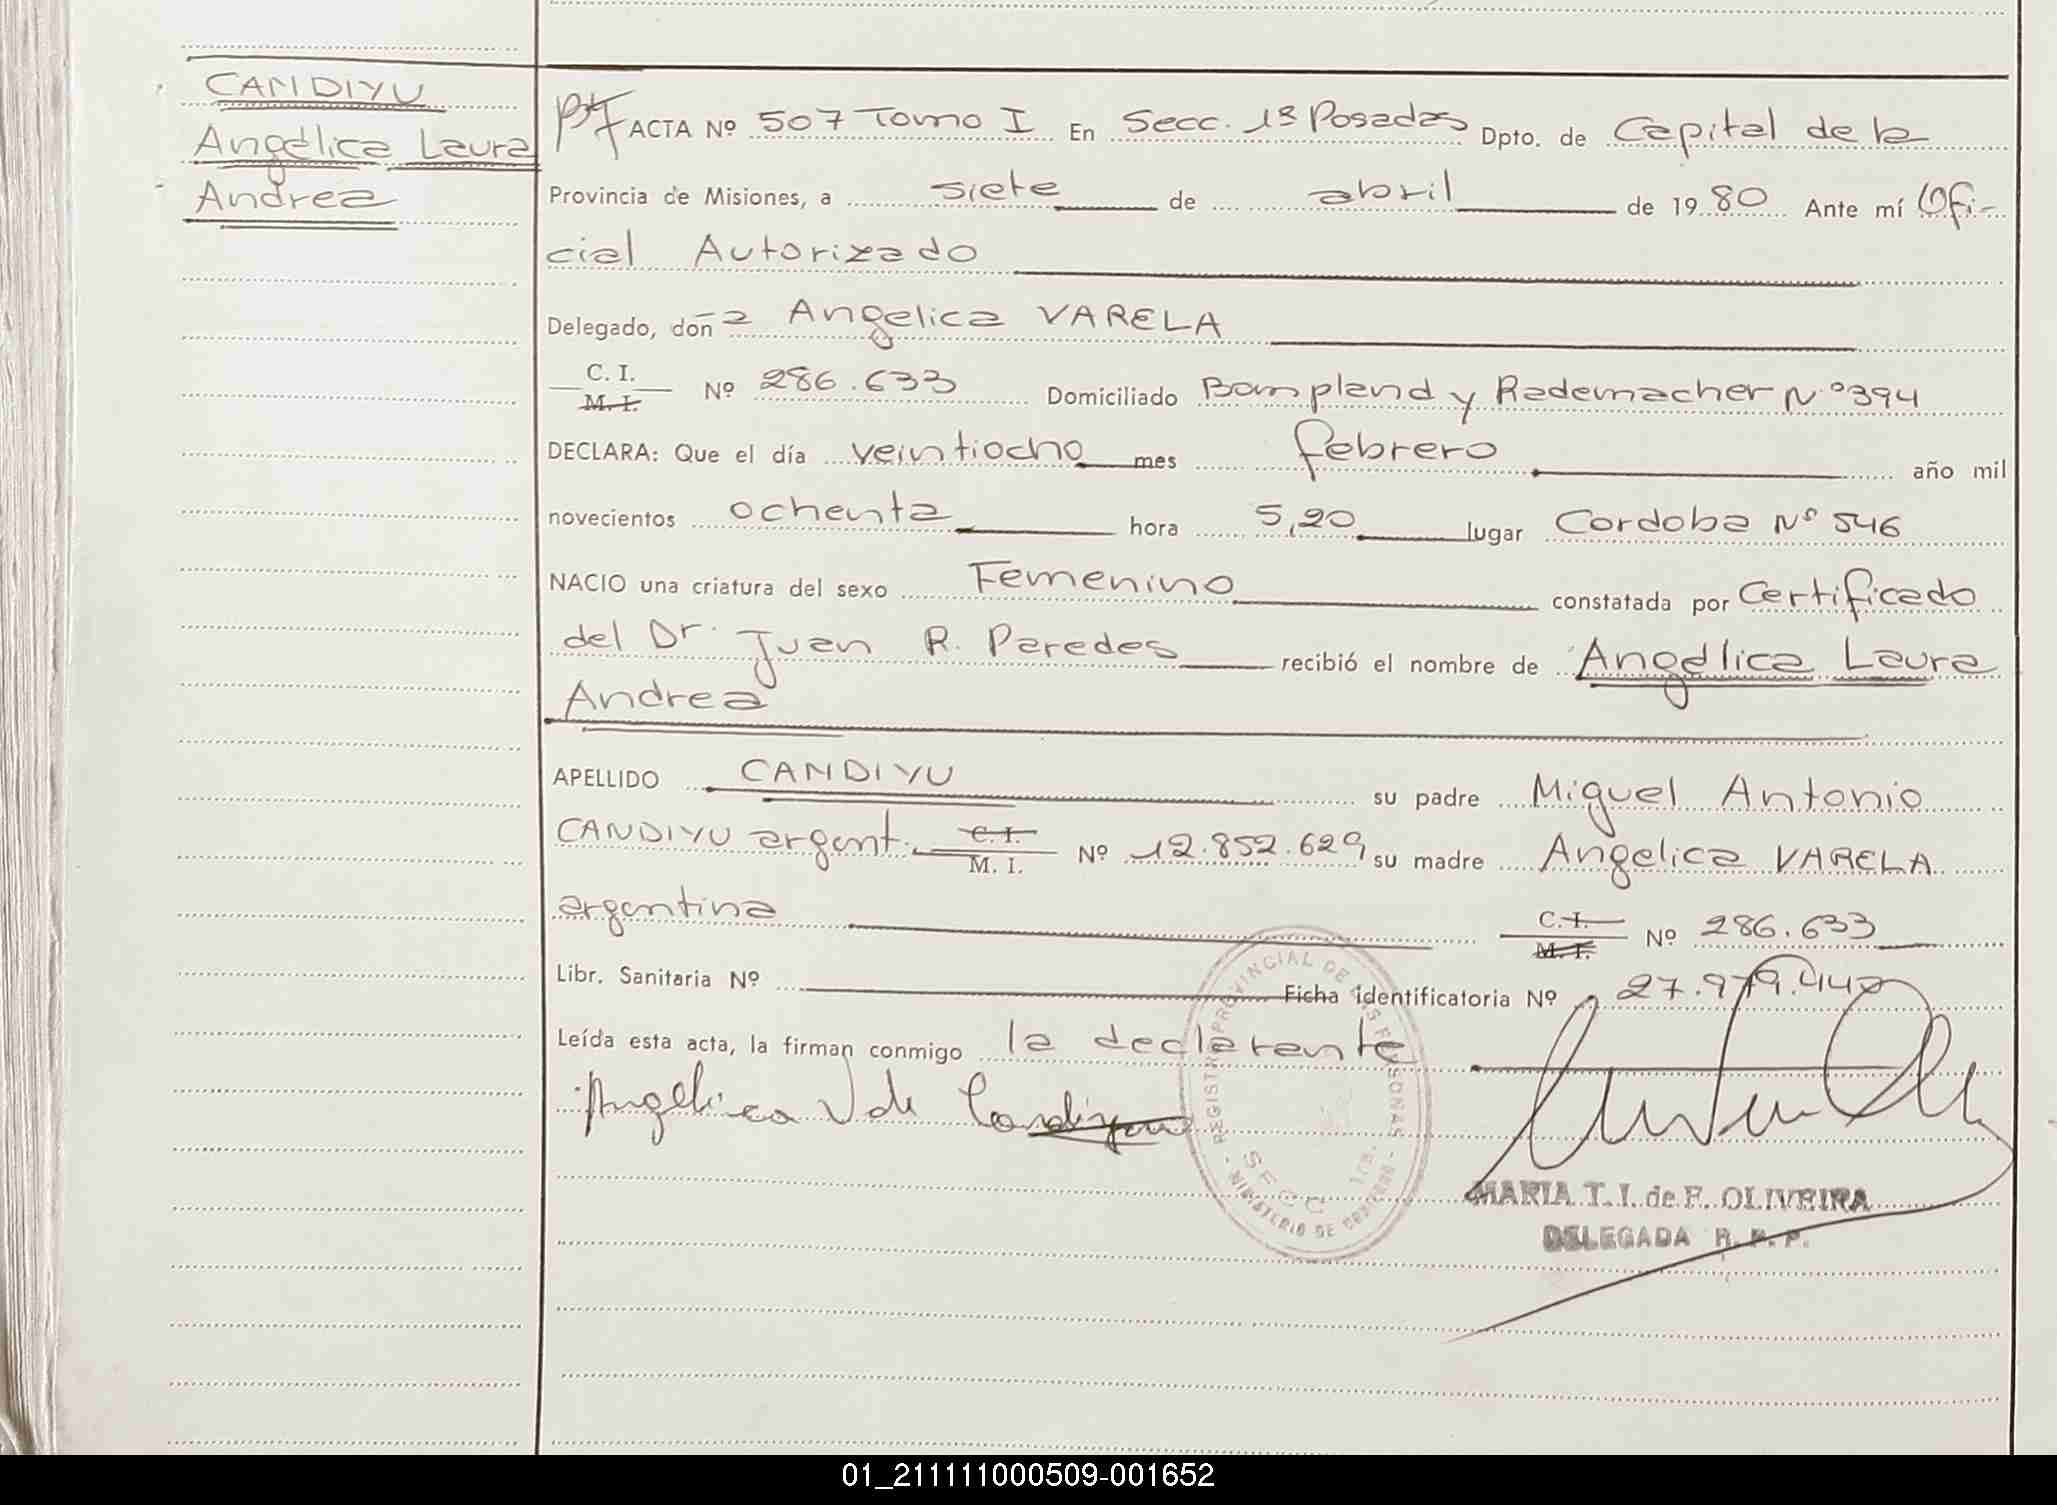 CANDIYU
Angélica Laura
Andrea
ACTA Nº 507 Tomo I En Secc. 1ª Posadas Dpto. de Capital de la
Provincia de Misiones, a siete de abril de 1980 Ante mí Ofi-
cial Autorizado
Delegado, doña Angelica VARELA
C. I.
M. I. Nº 286.633 Domiciliado Bompland y Rademacher Nº394
DECLARA: Que el día veintiocho mes febrero año mil
novecientos ochenta hora 5,20 lugar Cordoba Nº 546
NACIO una criatura del sexo Femenino constatada por Certificado
del Dr. Juan R. Paredes recibió el nombre de Angélica Laura
Andrea
APELLIDO CANDIYU su padre Miguel Antonio
CANDIYU argent. C. I.
M. I. Nº 12.852.629 su madre Angelica VARELA
argentina C. I.
M. I. Nº 286.633
Libr. Sanitaria Nº Ficha identificatoria Nº 27.979.440
Leída esta acta, la firman conmigo la declarante
Angelica V de Candiyu
REGISTRO PROVINCIAL DE LAS PERSONAS
SECC 1ra.
MINISTERIO DE GOBIERNO
MARIA T. I. de F. OLIVEIRA
DELEGADA R. P. P.
01_211111000509-001652